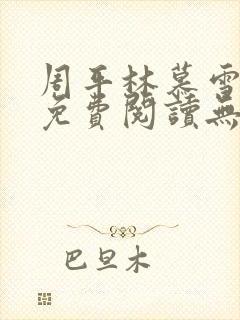 周平林慕雪
免費閱讀無
巴旦木